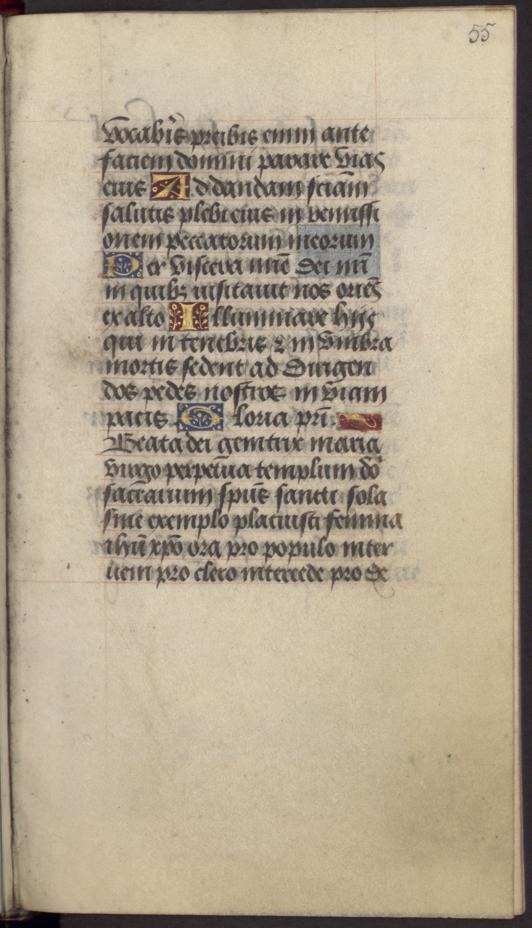 55
vocaberis preibis enim ante
faciem domini parare vias
eius Ad dandam sciam
salutis plebi eius in remissi
onem peccatorum meorum
Per viscera mīe dei nrī
in quibȝ visitavit nos oriēs
ex alto Illuminare hijs
qui in tenebris ⁊ in umbra
mortis sedent ad dirigen
dos pedes nostros in viam
pacis. Gloria prī.
Beata dei genitrix maria
virgo perpetua templum dō
sacrarium spūs sancti sola
sine exemplo placuisti femina
ihū xpō ora pro populo inter
ueni pro clero intercede pro de